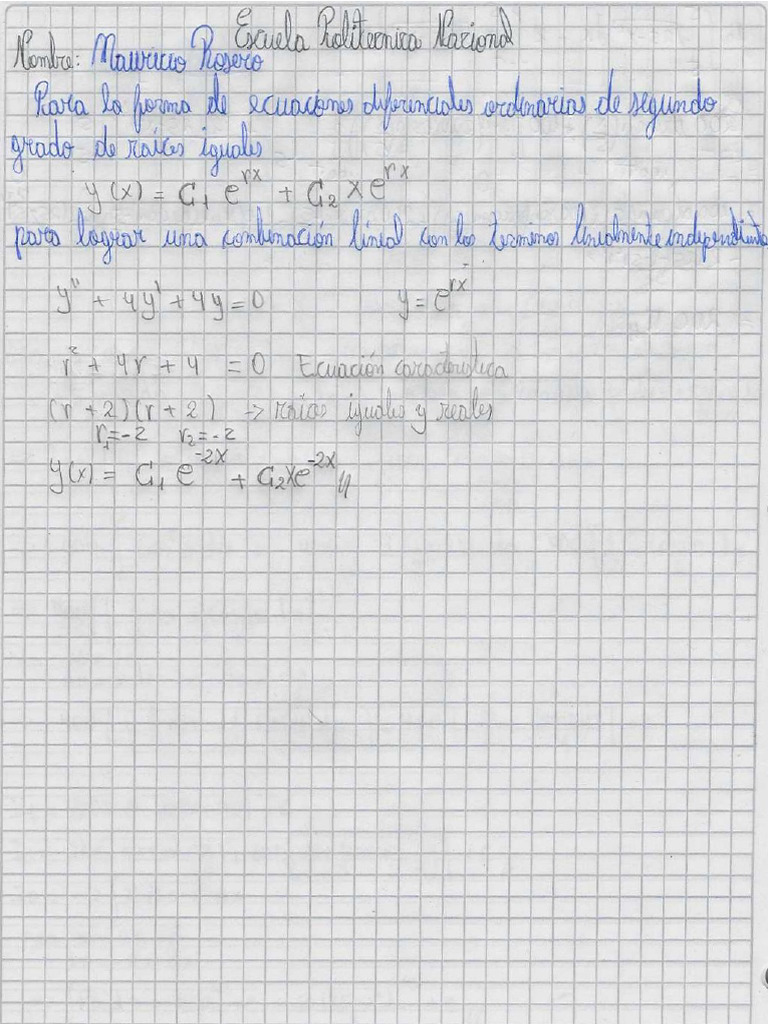 Escuela Politecnica Nacional
Nombre: Mauricio Rosero
Para la forma de ecuaciones diferenciales ordinarias de segundo
grado de raíces iguales
y(x) = C₁ e^{rx} + C₂ x e^{rx}
para lograr una combinación lineal con los terminos linealmente independientes
y'' + 4y' + 4y = 0 y = e^{rx}
r² + 4r + 4 = 0 Ecuación caracteristica
(r + 2)(r + 2) -> raices iguales y reales
r₁=-2 r₂=-2
y(x) = C₁ e^{-2x} + C₂xe^{-2x} //